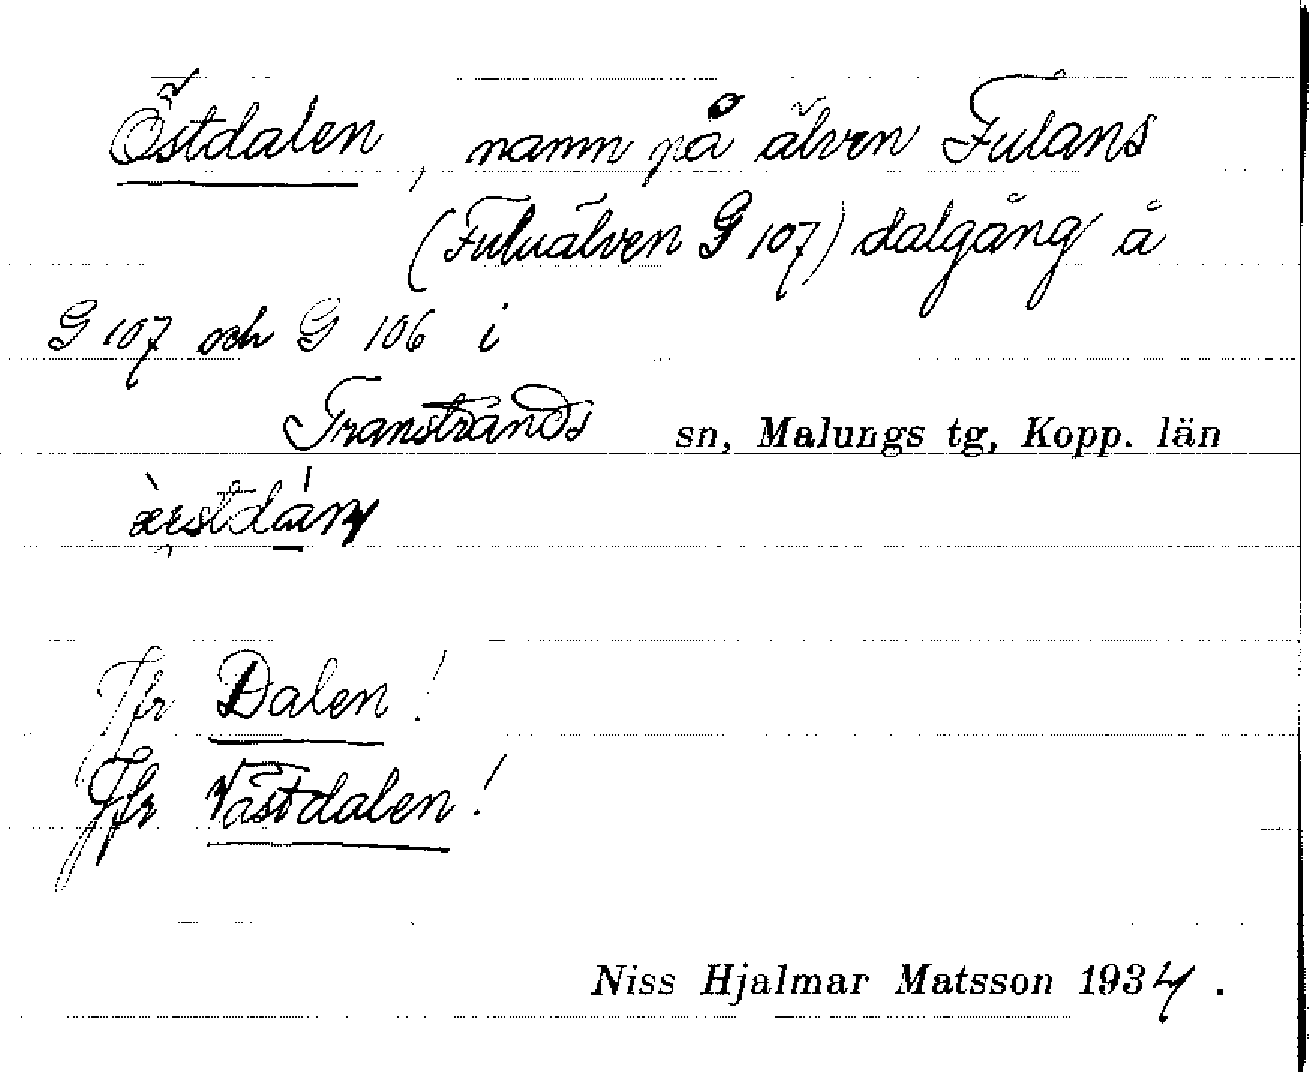 Östdalen, namn på älven Fulans
(Fuluälven G 107) dalgång å
G 107 och G 106 i
Transtrands sn, Malungs tg, Kopp. län
Jfr Dalen!
Jfr Västdalen!
Niss Hjalmar Matsson 1934.